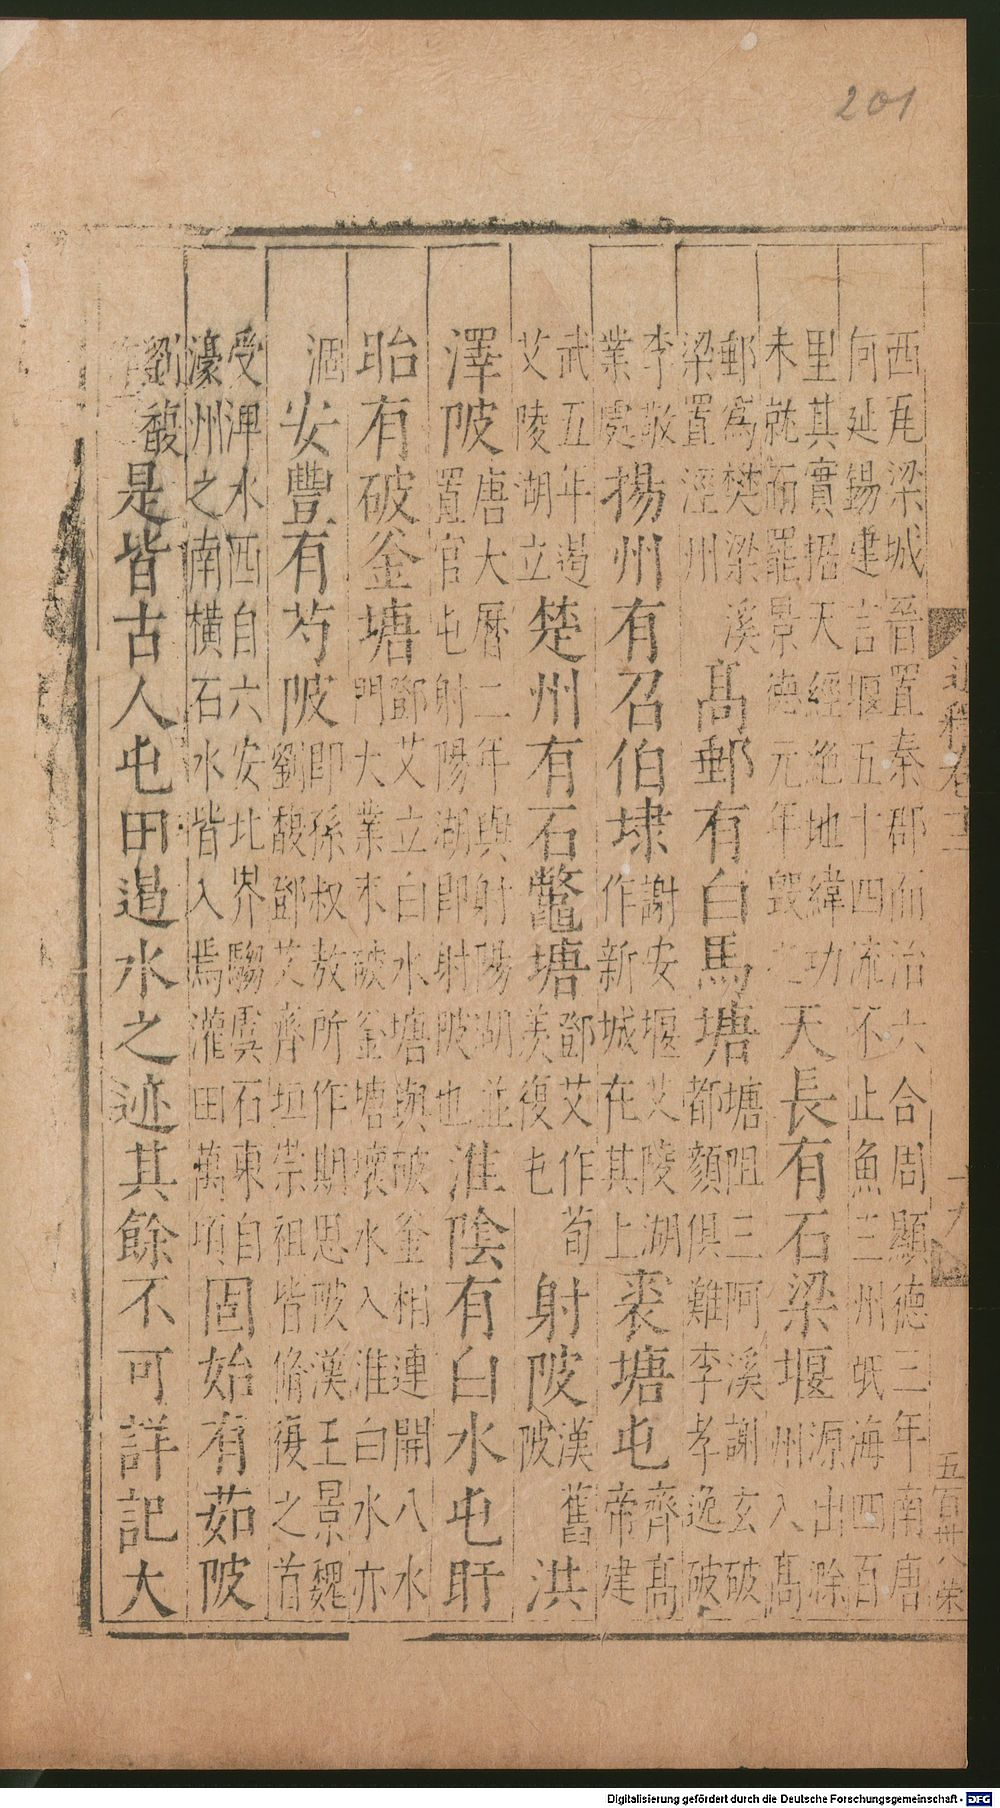 201
西瓦梁城晉置秦郡而治六合周顯德三年南唐
何延錫建言堰五十四流不止魚三州氓海四百
里其實据天經絶地緯功
未就而罷景德元年毀
天長有石梁堰
源出滁
州入高
郵爲樊梁溪
梁置涇州
高郵有白馬塘
塘阻三阿溪謝玄破
都顏俱難李孝逸破
李敬
業處
揚州有召伯埭
謝安堰艾陵湖
作新城在其上
裘塘屯
齊高
帝建
武五年遏
艾陵湖立
楚州有石鼈塘
鄧艾作荀
羡復屯
射陂
漢舊
陂
洪
澤陂
唐大曆二年與射陽湖並
置官屯射陽湖即射陂也
淮陰有白水屯盱
眙有破釜塘
鄧艾立白水塘與破釜相連開八水
門大業末破釜塘壞水入淮白水亦
涸
安豐有芍陂
即孫叔敖所作期思陂漢王景魏
劉馥鄧艾齊垣崇祖皆脩復之首
受淠水西自六安北界騶虞石東自
濠州之南橫石水皆入焉灌田萬頃
固始有茹陂
劉馥
是皆古人屯田遏水之迹其餘不可詳記大
五百卅八 榮
Digitalisierung gefördert durch die Deutsche Forschungsgemeinschaft - DFG